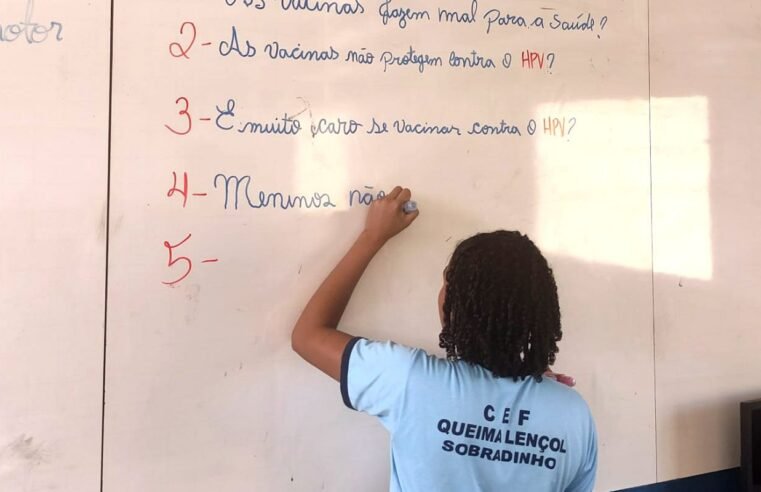 otor
vacinas fazem mal para a saúde?
2- As vacinas não protegem contra o HPV?
3- É muito caro se vacinar contra o HPV?
4- Meninos não
5-
CEF
QUEIMA LENÇOL
SOBRADINHO